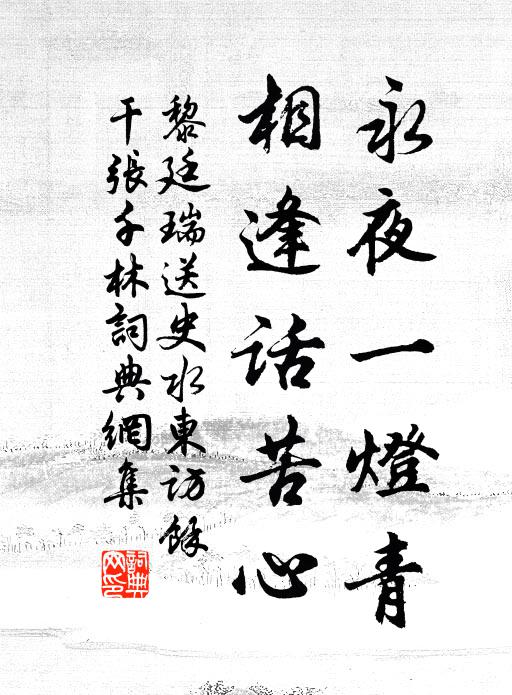 永夜一燈青
相逢話苦心
黎廷瑞送史水東訪餘
干張千林詞典網集
詞典
网印